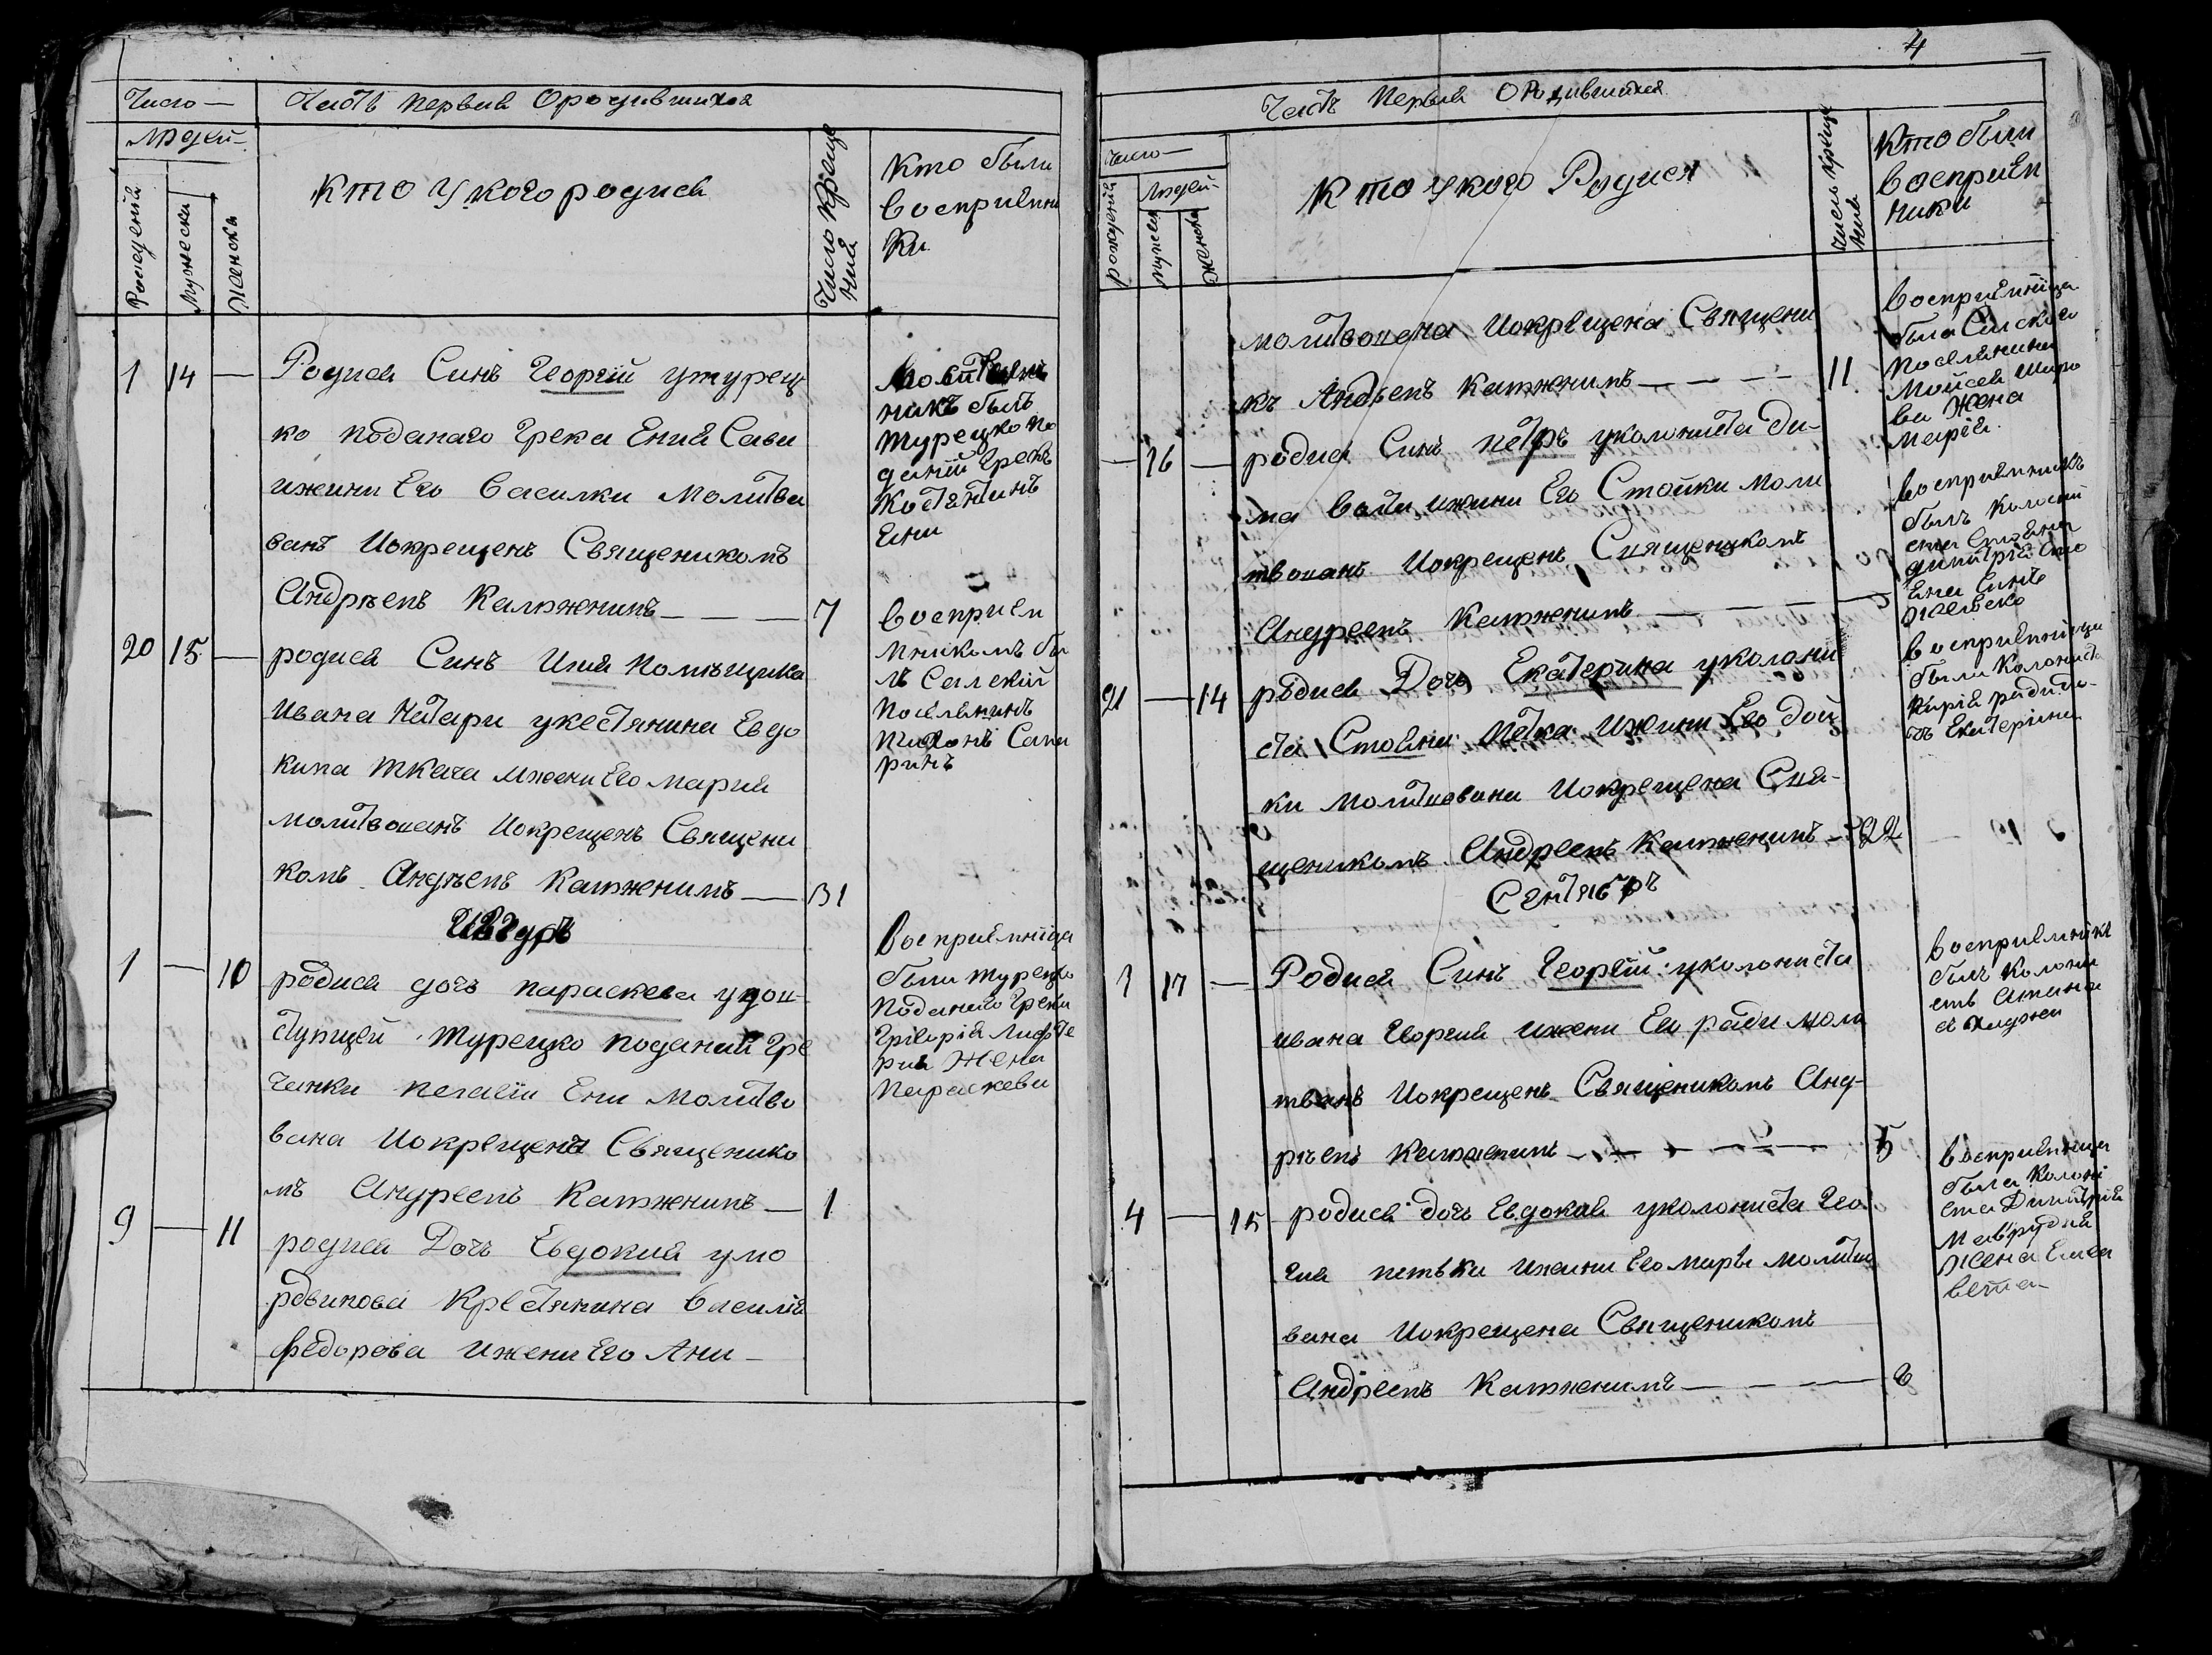 Число —
Часть первая О родившихся
Людей —
Рождений
Мужески
Женски
Кто у кого родися
Число креще
ний
Кто были
восприемни
ки
1 14 — Родися Синъ Георгій утурец
ко поданаго Грека Ений Сави
ижени Его Василки Молитво
ванъ Иокрещенъ Священикомъ
Андрѣемъ Калюжнимъ — — — 7
никъ былъ
турецко по
даній Грекъ
Костантинъ
Ени
20 15 — родися Синъ Илия помѣщика
Ивана Катари укестянина Евдо
кима Ткача ижени Его Марии
молитвованъ Иокрещенъ Священи
комъ Андрѣемъ Калюжнимъ — 31
восприем
мникомъ бы
лъ Салскій
поселянинъ
1 — 10 родися дочъ параскева удои
стущей турецко поданий Гре
чанки пелагіи Ени Молитво
вана Иокрещена Священико
мъ Андреемъ Калюжнимъ — 1
восприемніца
были турецко
поданаго Грека
Грігорія
рия Жена
Параскева
9 — 11 родися Дочъ Евдокия умо
рдвинова Крестянина Василія
федорова ижени Его Ани —
4
Часть первая О Родившихся
Число —
Людей —
рождений
мужеска
женска
Кто у кого Родися
Число креще
ния
Кто были
восприем
ники
молитвована Иокрещена Священи
къ Андрѣемъ Калюжнимъ — — — 11
восприемніца
была Салскаго
поселянина
Мойсея
ва Жена
Марія
— 16 — родися Синъ петръ уколониста Ди-
ма Вайи ижини Его Стойки моли
твованъ Иокрещенъ Священикомъ
Андреемъ Калюжнимъ — — —
восприемникъ
былъ колони
димитрія
Ени Синъ
21 — 14 родися Дочъ Екатерина уколони
ста Стояна Петка Ижини Его Дои
ки молитвована Иокрещена Свя-
щеникомъ Андреемъ Калюжнимъ — 22
восприемніца
были Колонист
Кирія
Екатеріна
Сентябръ
3 17 — Родися Синъ Георгій уколониста
ивана Георгия ижени Его ради моли
твванъ Иокрещенъ Священикомъ Анд-
рѣемъ Калюжнимъ — — — 5
восприемнікъ
былъ Колони
стъ
4 — 15 родися дочъ Евдокия уколониста Гео
гия петьки ижини Его мари молитво
вана Иокрещена Священикомъ
Андреемъ Калюжнимъ — — — 8
восприемница
была Колоні
ста Димитрія
Маврудия
жена Елиса
вета